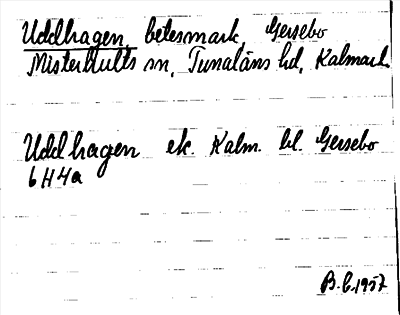 Uddhagen, betesmark, Gersebo
Misterhults sn, Tunaläns hd, Kalmar l.
Uddhagen ek. Kalm. bl. Gersebo
6H4a
B.C. 1957